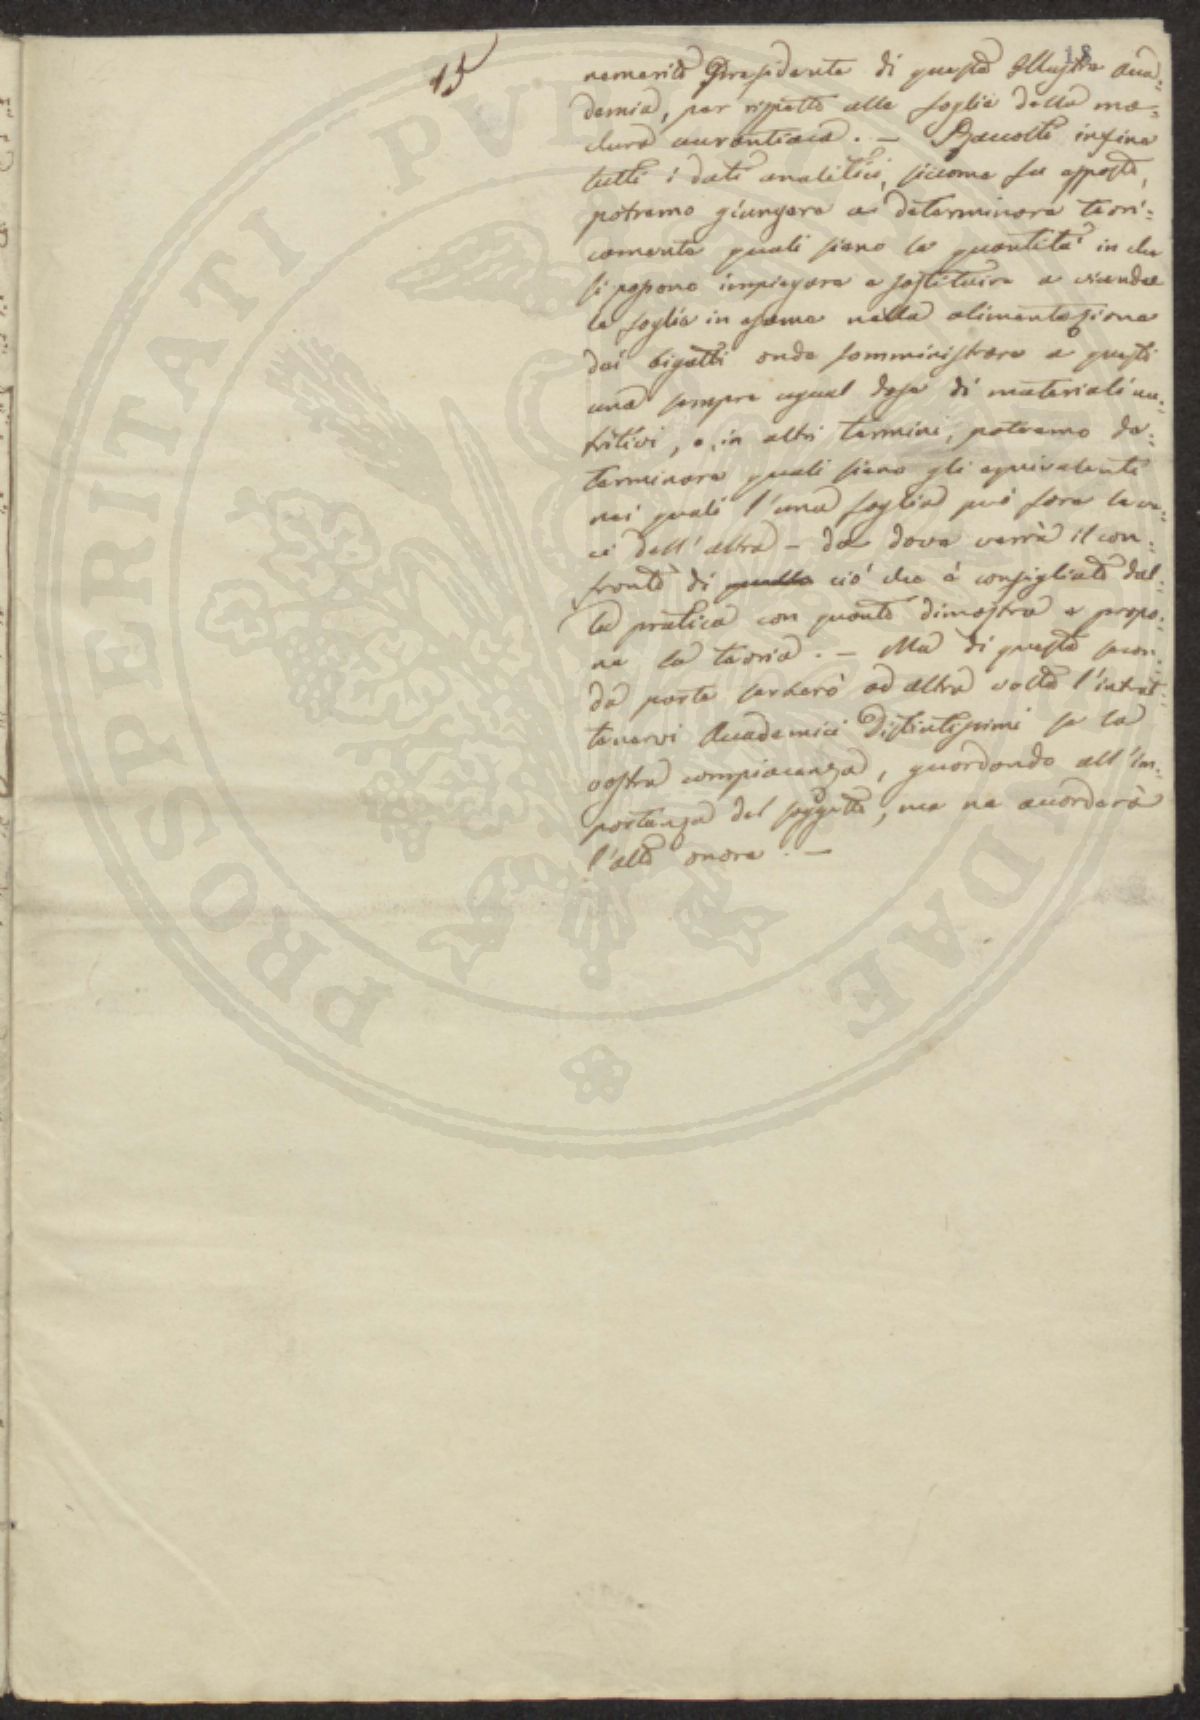 15
18
nemerito Presidente di questa Illustre Acca=
demia, per rispetto alle foglie della ma=
clura aurantiaca. — Raccolti infine
tutti i dati analitici, siccome fu esposto,
potremo giungere a determinare teori=
camente quali siano le quantità in che
si possono impiegare e sostituire a vicenda
le foglie in esame nella alimentazione
dei bigatti onde somministrare a questi
una sempre egual dose di materiali nu=
tritivi, o, in altri termini, potremo de=
terminare quali siano gli equivalenti
nei quali l'una foglia può fare le ve=
ci dell'altra – da dove verrà il con=
fronto di quello ciò che è consigliato dal=
la pratica con quanto dimostra e propo=
ne la teoria. — Ma di questa secon=
da parte serberò ad altra volta l'intrat=
tenervi Accademici Distintissimi se la
vostra compiacenza, guardando all'im=
portanza del soggetto, me ne accorderà
l'alto onore. —
PROSPERITATI PVBLICAE